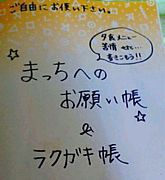 ご自由にお使い下さい。
夕食メニュー
苦情 etc...
書きこもう!!
まっちへの
お願い帳
&
ラクガキ帳